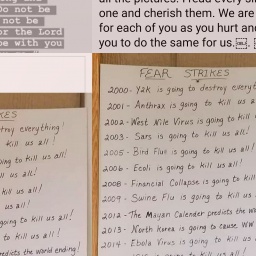 Do not be
not be
or the Lord
be with you
all the pictures. I read every si
one and cherish them. We are
for each of you as you hurt and
you to do the same for us.
KES
troy everything!
kill us all!
ing to kill us all!
ll us all!
kill us all!
us all!
going to kill us all!
to kill us all!
redicts the world ending!
FEAR STRIKES
2000- Y2K is going to destroy everyt
2001 - Anthrax is going to kill us a
2002- West Nile Virus is going to kill
2003 - Sars is going to kill us all!
2005 - Bird Flue is going to kill us all!
2006 - Ecoli is going to kill us all!
2008 - Financial Collapse is going to kill
2009 - Swine Flu is going to kill us
2012 - The Mayan Calender predicts the wo
2013 - North Korea is going to cause WW
2014 - Ebola Virus is going to kill us